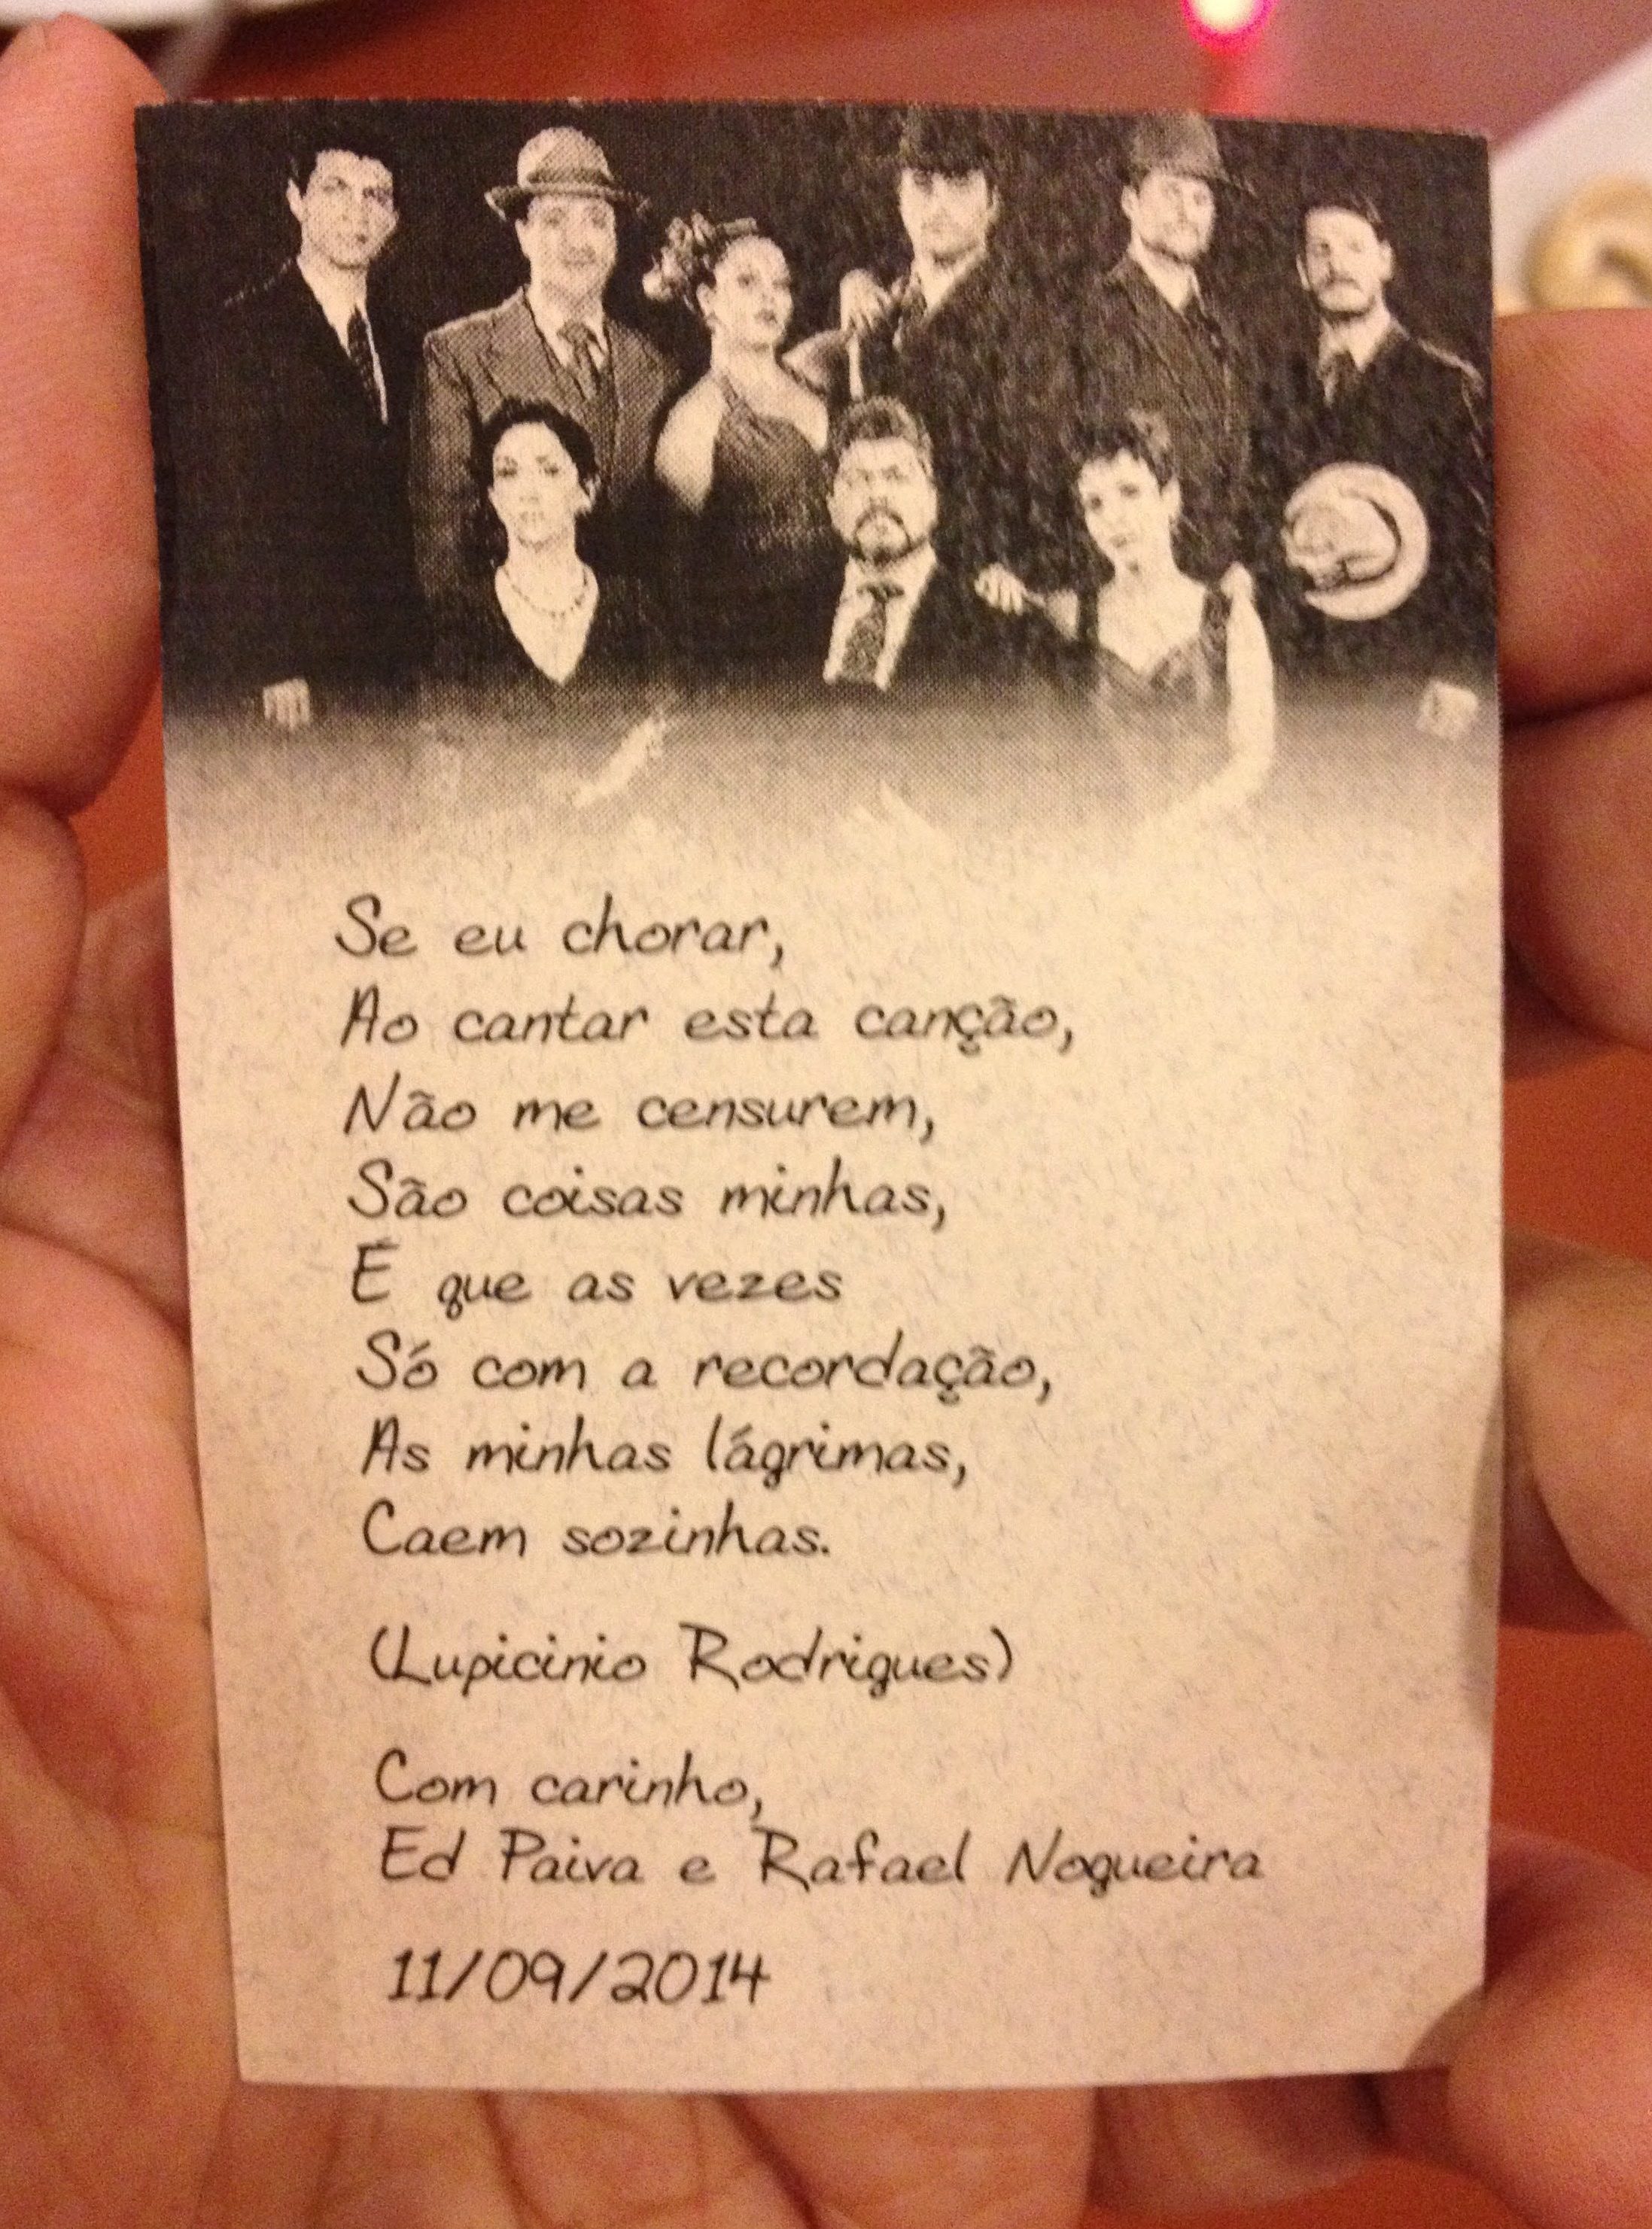 Se eu chorar,
Ao cantar esta canção,
Não me censurem,
São coisas minhas,
É que as vezes
Só com a recordação,
As minhas lágrimas,
Caem sozinhas.
(Lupicinio Rodrigues)
Com carinho,
Ed Paiva e Rafael Nogueira
11/09/2014